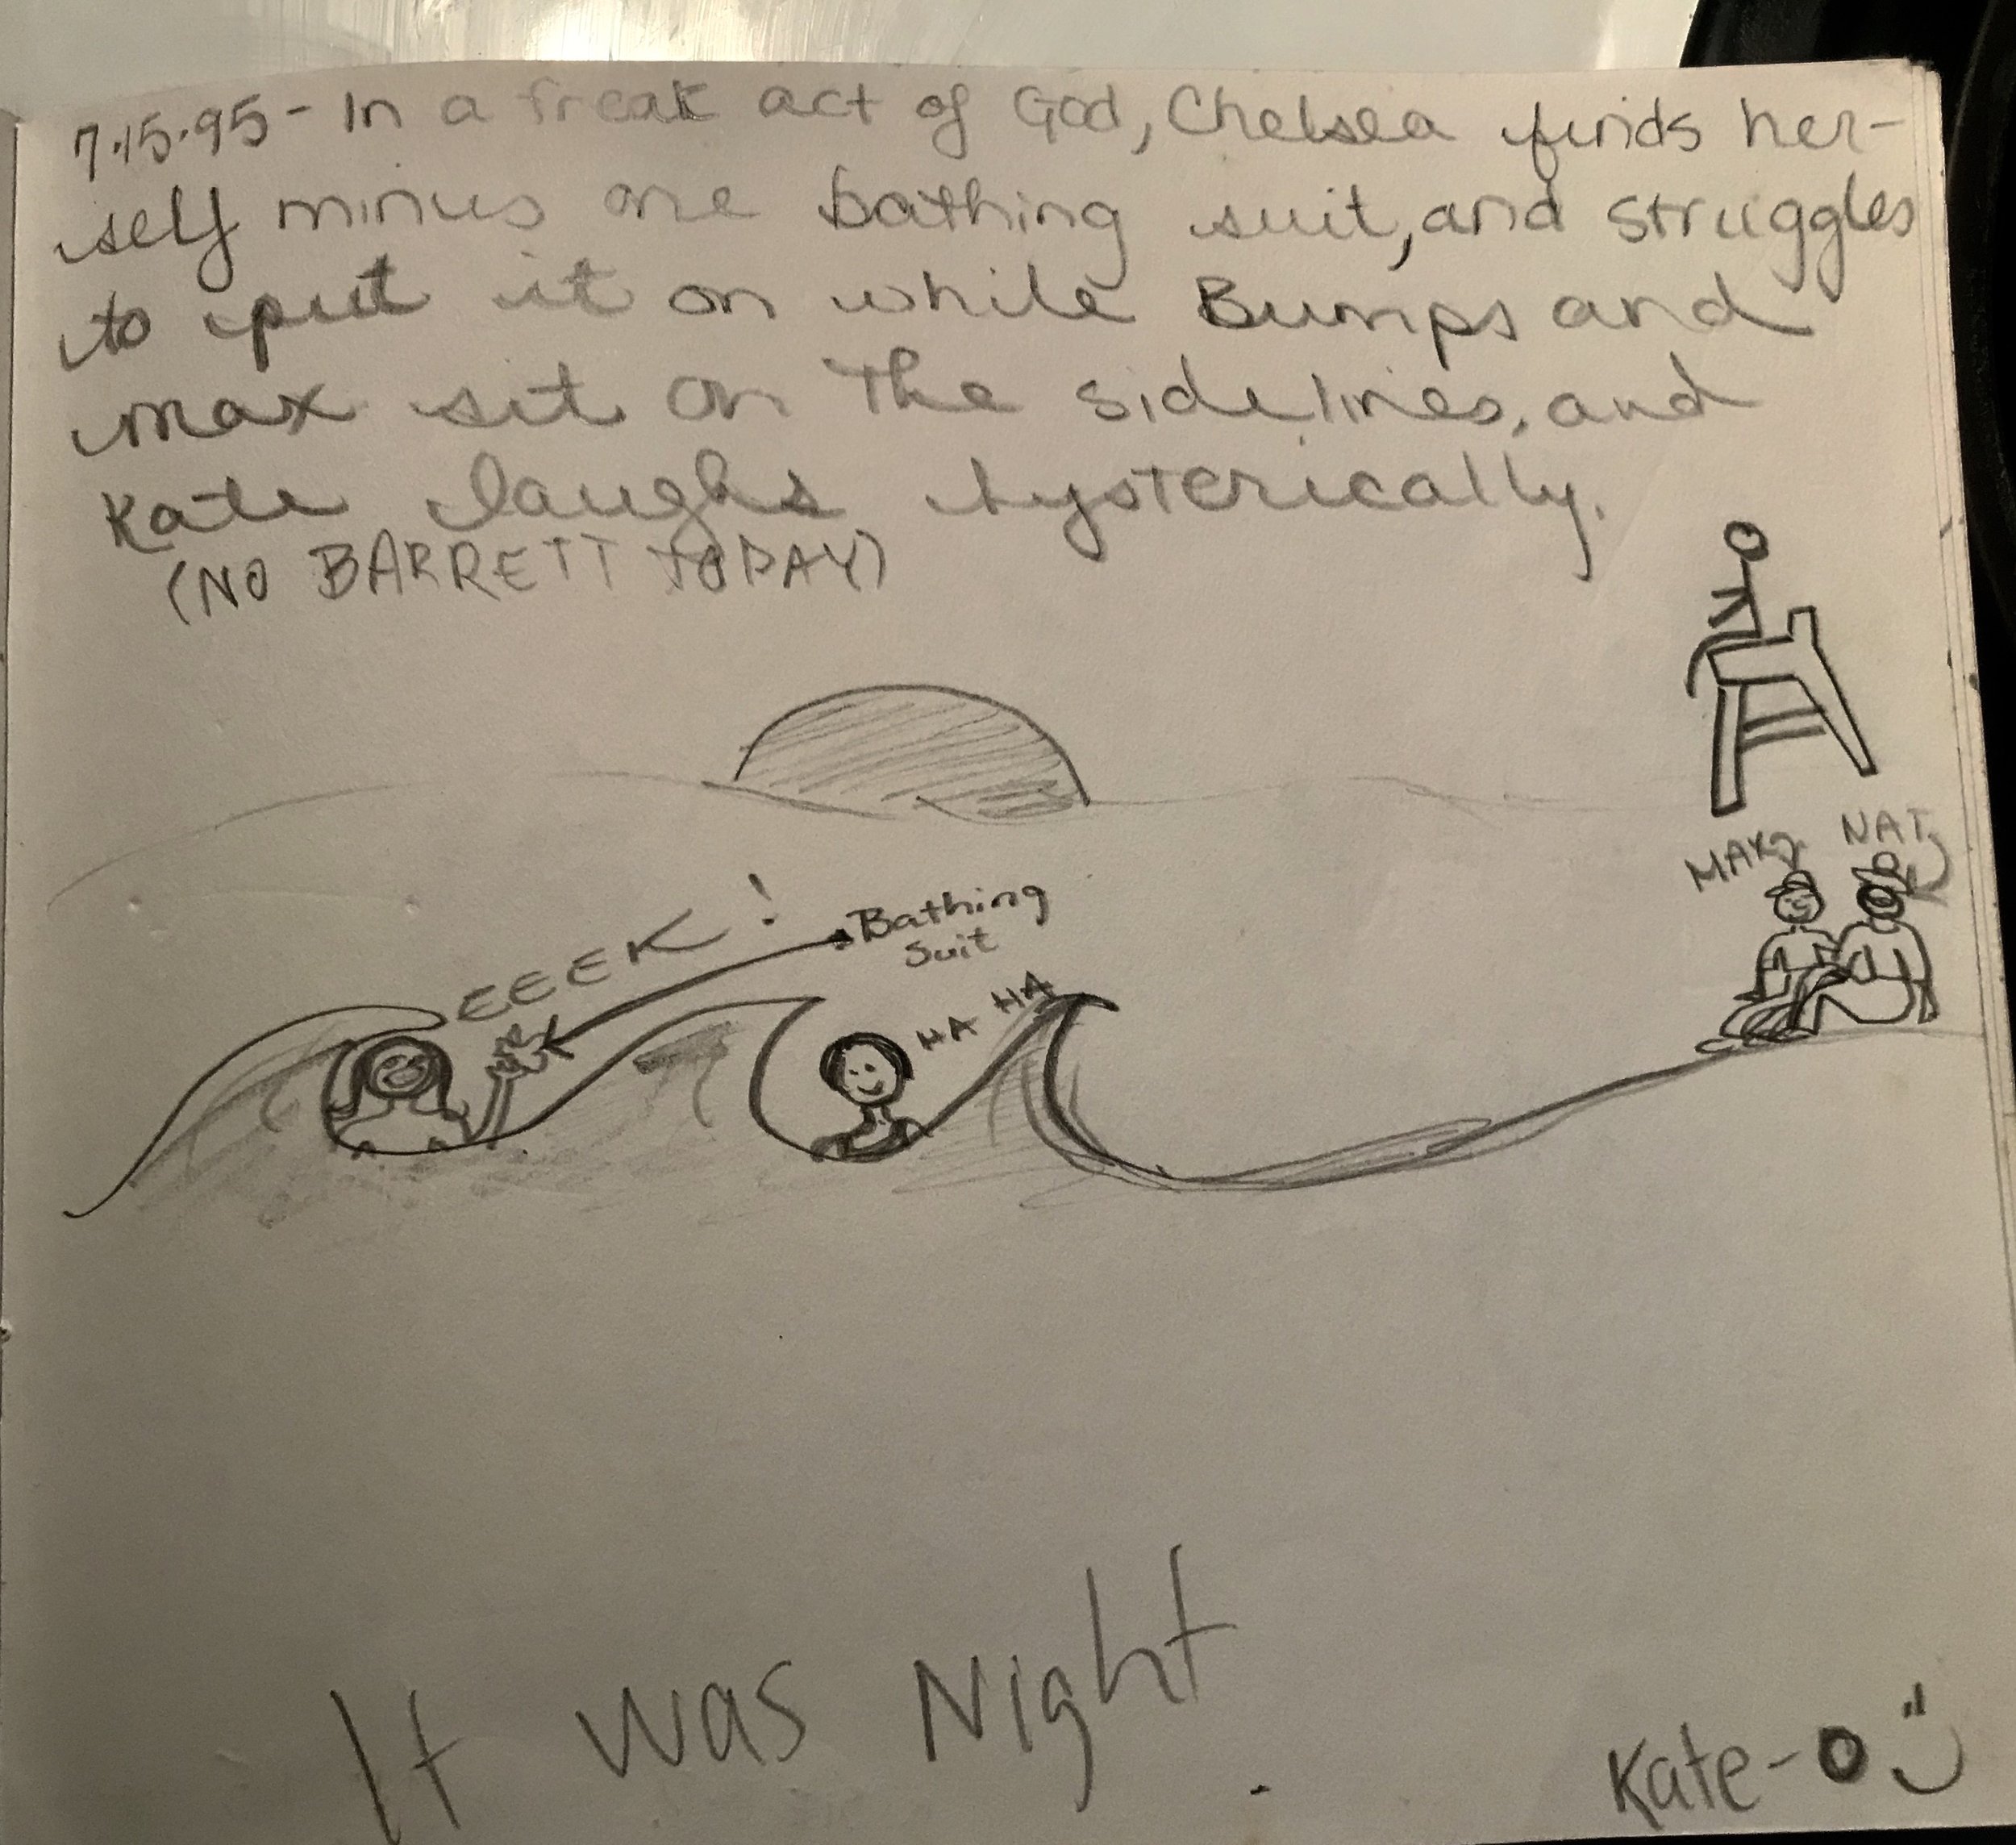 7.15.95 - In a freak act of God, Chelsea finds her-
self minus one bathing suit, and struggles
to put it on while Bumps and
max sit on The sidelines, and
Kate laughs hysterically.
(NO BARRETT TODAY)
MAX NAT
EEEEK!
Bathing
Suit
HA HA
It was Night.
Kate-O